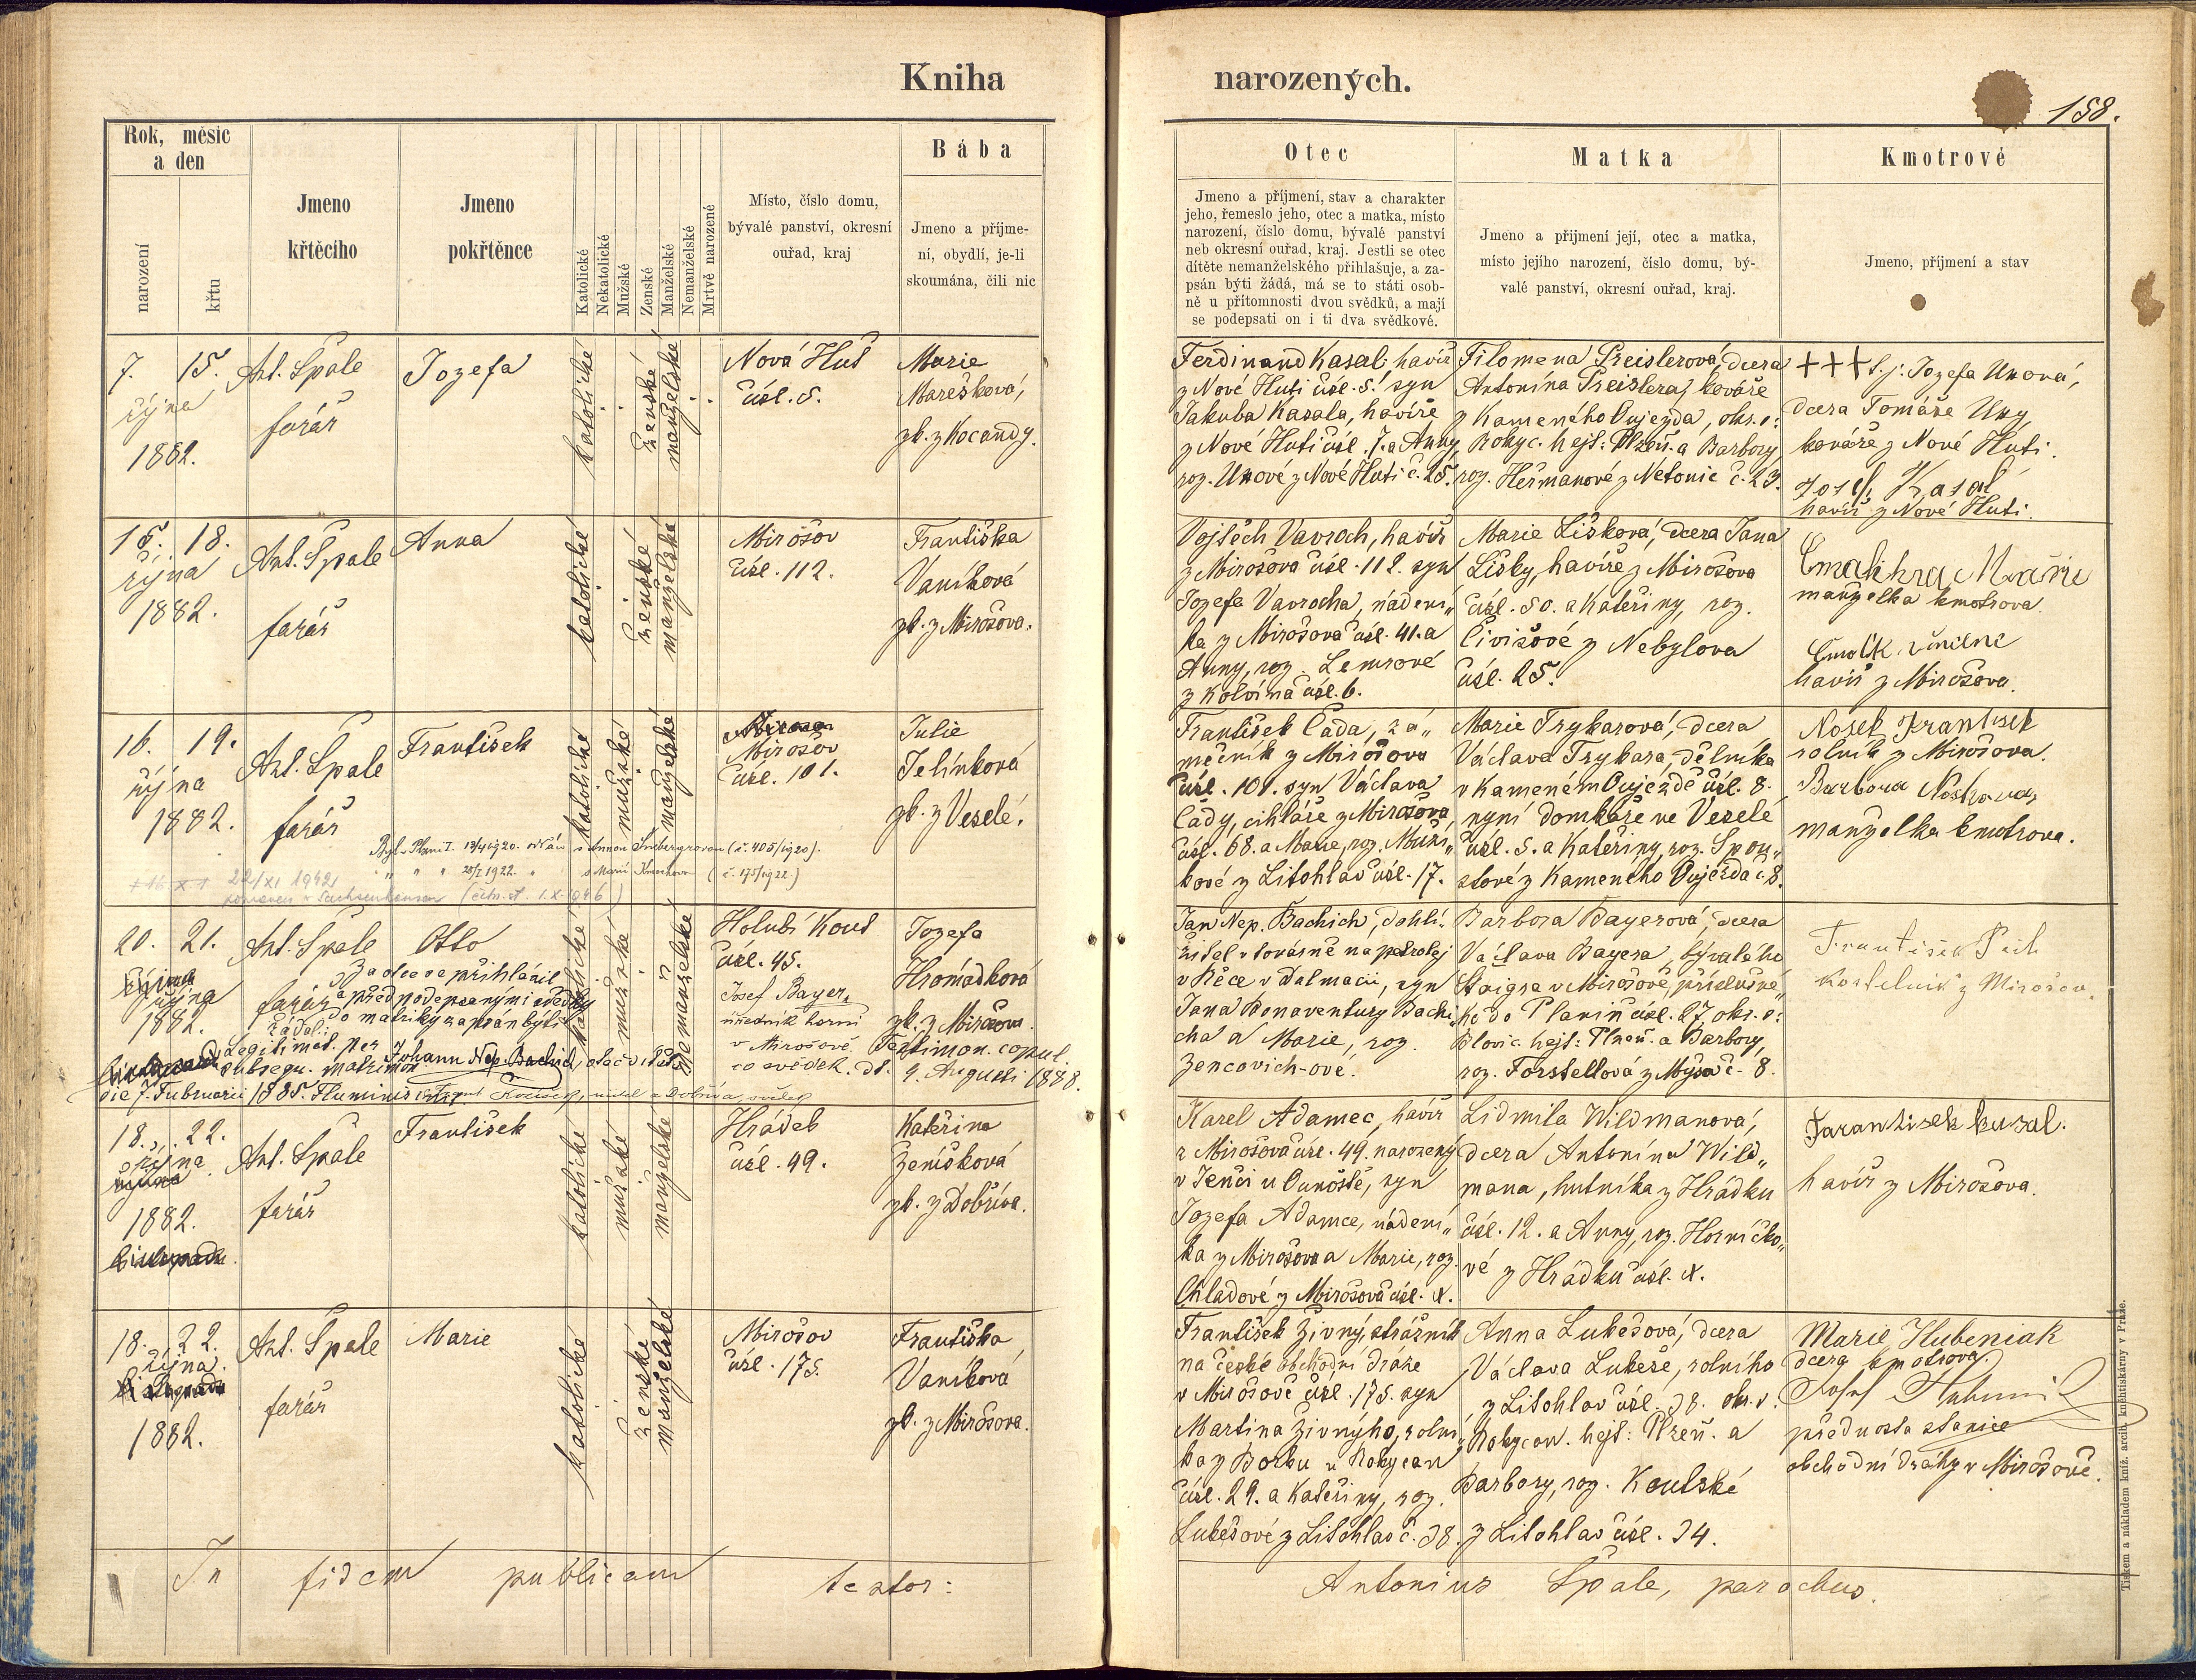 Kniha
narozených.
158.
Rok, měsíc
a den
narození
křtu
Jmeno
křtěcího
Jmeno
pokřtěnce
Katolické
Nekatolické
Mužské
Ženské
Manželské
Nemanželské
Mrtvě narozené
Místo, číslo domu,
bývalé panství, okresní
ouřad, kraj
Bába
Jmeno a příjme-
ní, obydlí, je-li
skoumána, čili nic
Otec
Jmeno a příjmení, stav a charakter
jeho, řemeslo jeho, otec a matka, místo
narození, číslo domu, bývalé panství
neb okresní ouřad, kraj. Jestli se otec
dítěte nemanželského přihlašuje, a za-
psán býti žádá, má se to státi osob-
ně u přítomnosti dvou svědků, a mají
se podepsati on i ti dva svědkové.
Matka
Jmeno a přijmení její, otec a matka,
místo jejího narození, číslo domu, bý-
valé panství, okresní ouřad, kraj.
Kmotrové
Jmeno, příjmení a stav
7. 15.
října
1882.
Ant. Špale
farář
Jozefa
katolické
ženské
manželské
Nová Huť
čísl. 5.
Marie
Marešková,
zk. z Kocandy.
Ferdinand Kasal, havíř
z Nové Huti čísl. 5. syn
Jakuba Kasala, havíře
z Nové Huti čísl. 7. a Anny
roz. Unové z Nové Huti č. 25.
Filomena Preislerová, dcera
Antonína Preislera, kováře
z Kameného Oujezda, okr. o:
Rokyc. hejt: Plzeň. a Barbory
roz. Heřmanové z Netonic č. 23.
+++ t. j: Jozefa Unová,
dcera Tomáše Uny
kováře z Nové Huti.
Josef Kasal
havíř z Nové Huti.
15. 18.
října
1882.
Ant. Špale
farář
Anna
katolické
ženské
manželské
Mirošov
čísl. 112.
Františka
Vaníková
zk. z Mirošova.
Vojtěch Vavroch, havíř
z Mirošova čísl. 112. syn
Jozefa Vavrocha, nádení„
ka z Mirošova čísl. 41. a
Anny, roz. Lemrové
z Kolvína čísl. 6.
Marie Lišková, dcera Jana
Lišky, havíře z Mirošova
čísl. 50. a Kateřiny, roz.
Čivišové z Nebylova
čísl. 25.
Marie
manželka kmotrova.
havíř z Mirošova.
16. 19.
října
1882.
Ant. Špale
farář
František
katolické
mužské
manželské
Mirošov
čísl. 101.
Julie
Jelínková
zk. z Veselé.
František Čada, zá„
mečník z Mirošova
čísl. 101. syn Václava
Čady, cihláře z Mirošova,
čísl. 68. a Marie, roz.
kové z Litohlav čísl. 17.
Marie Trykarová, dcera
Václava Trykara, dělníka
v Kameném Oujezdě čísl. 8.
nyní domkáře ve Veselé
čísl. 5. a Kateřiny, roz. Spou„
stové z Kameného Oujezda č. 8.
Nosek František
rolník z Mirošova.
Barbora Nosková
manželka kmotrova.
Plzni I. 13/4 1920. s Annou (č. 405/1920).
" " " 28/I 1922. " s Marií (č. 175/1922.)
22/XI 1942
Sachsenhausen
20. 21.
října
1882.
Ant. Špale
farář
Otto
Za otce se přihlásil
a před podepsanými svědky
do matriky zapsán býti
žádal:
Legitimat. per
subsequ. matrimon.
Johann Nep. Bachich, otec dítěte
die 7. Februarii 1885. Fluminis
katolické
mužské
nemanželské
Holubí Kout
čísl. 45.
Josef Bayer,
úředník horní
v Mirošově
co svědek.
Jozefa
Hromádková
zk. z Mirošova
Testimon. copul.
dt. 9. Augusti 1888.
Jan Nep. Bachich, dohlí„
žitel v továrně na petrolej
v Řěce v Dalmacii, syn
Jana Bonaventury Bachi„
cha a Marie, roz.
Zencovich-ové.
Barbora Bayerová, dcera
Václava Bayera, bývalého
Štaigra v Mirošově, příslušné„
ho do Planiň čísl. 27 okr. o:
Blovic. hejt: Plzeň. a Barbory,
roz. Forstellová z Mýta č. 8.
František
kostelník z Mirošova.
18. 22.
října
1882.
Ant. Špale
farář
František
katolické
mužské
manželské
Hrádek
čísl. 49.
Kateřina
Ženíšková
zk. z Dobříva.
Karel Adamec, havíř
z Mirošova čísl. 49. narozený
v Jenči u Ounoště, syn
Jozefa Adamce, nádení„
ka z Mirošova a Marie, roz.
Chladové z Mirošova čísl. X.
Lidmila Wildmanová,
dcera Antonína Wild„
mana, hutníka z Hrádku
čísl. 12. a Anny, roz. Horničko„
vé z Hrádku čísl. X.
havíř z Mirošova.
18. 22.
října.
1882.
Ant. Špale
farář
Marie
katolické
ženské
manželské
Mirošov
čísl. 175.
Františka
Vaníková
zk. z Mirošova.
František Živný, strážník
na české obchodní dráze
v Mirošově čísl. 175. syn
Martina Živnýho, rolní„
ka z Borku u Rokycan
čísl. 29. a Kateřiny, roz.
Lukešové z Litohlav č. 38.
Anna Lukešová, dcera
Václava Lukeše, rolního
z Litohlav čísl. 38. okr. o:
Rokycan. hejt: Plzeň. a
Barbory, roz. Koulské
z Litohlav čísl. 34.
Marie Hubeniak
dcera kmotrova.
přednosta stanice
obchodní dráhy v Mirošově.
In fidem publicam testor:
Antonius Špale, parochus.
Tiskem a nákladem kníž. arcib. knihtiskárny v Praze.